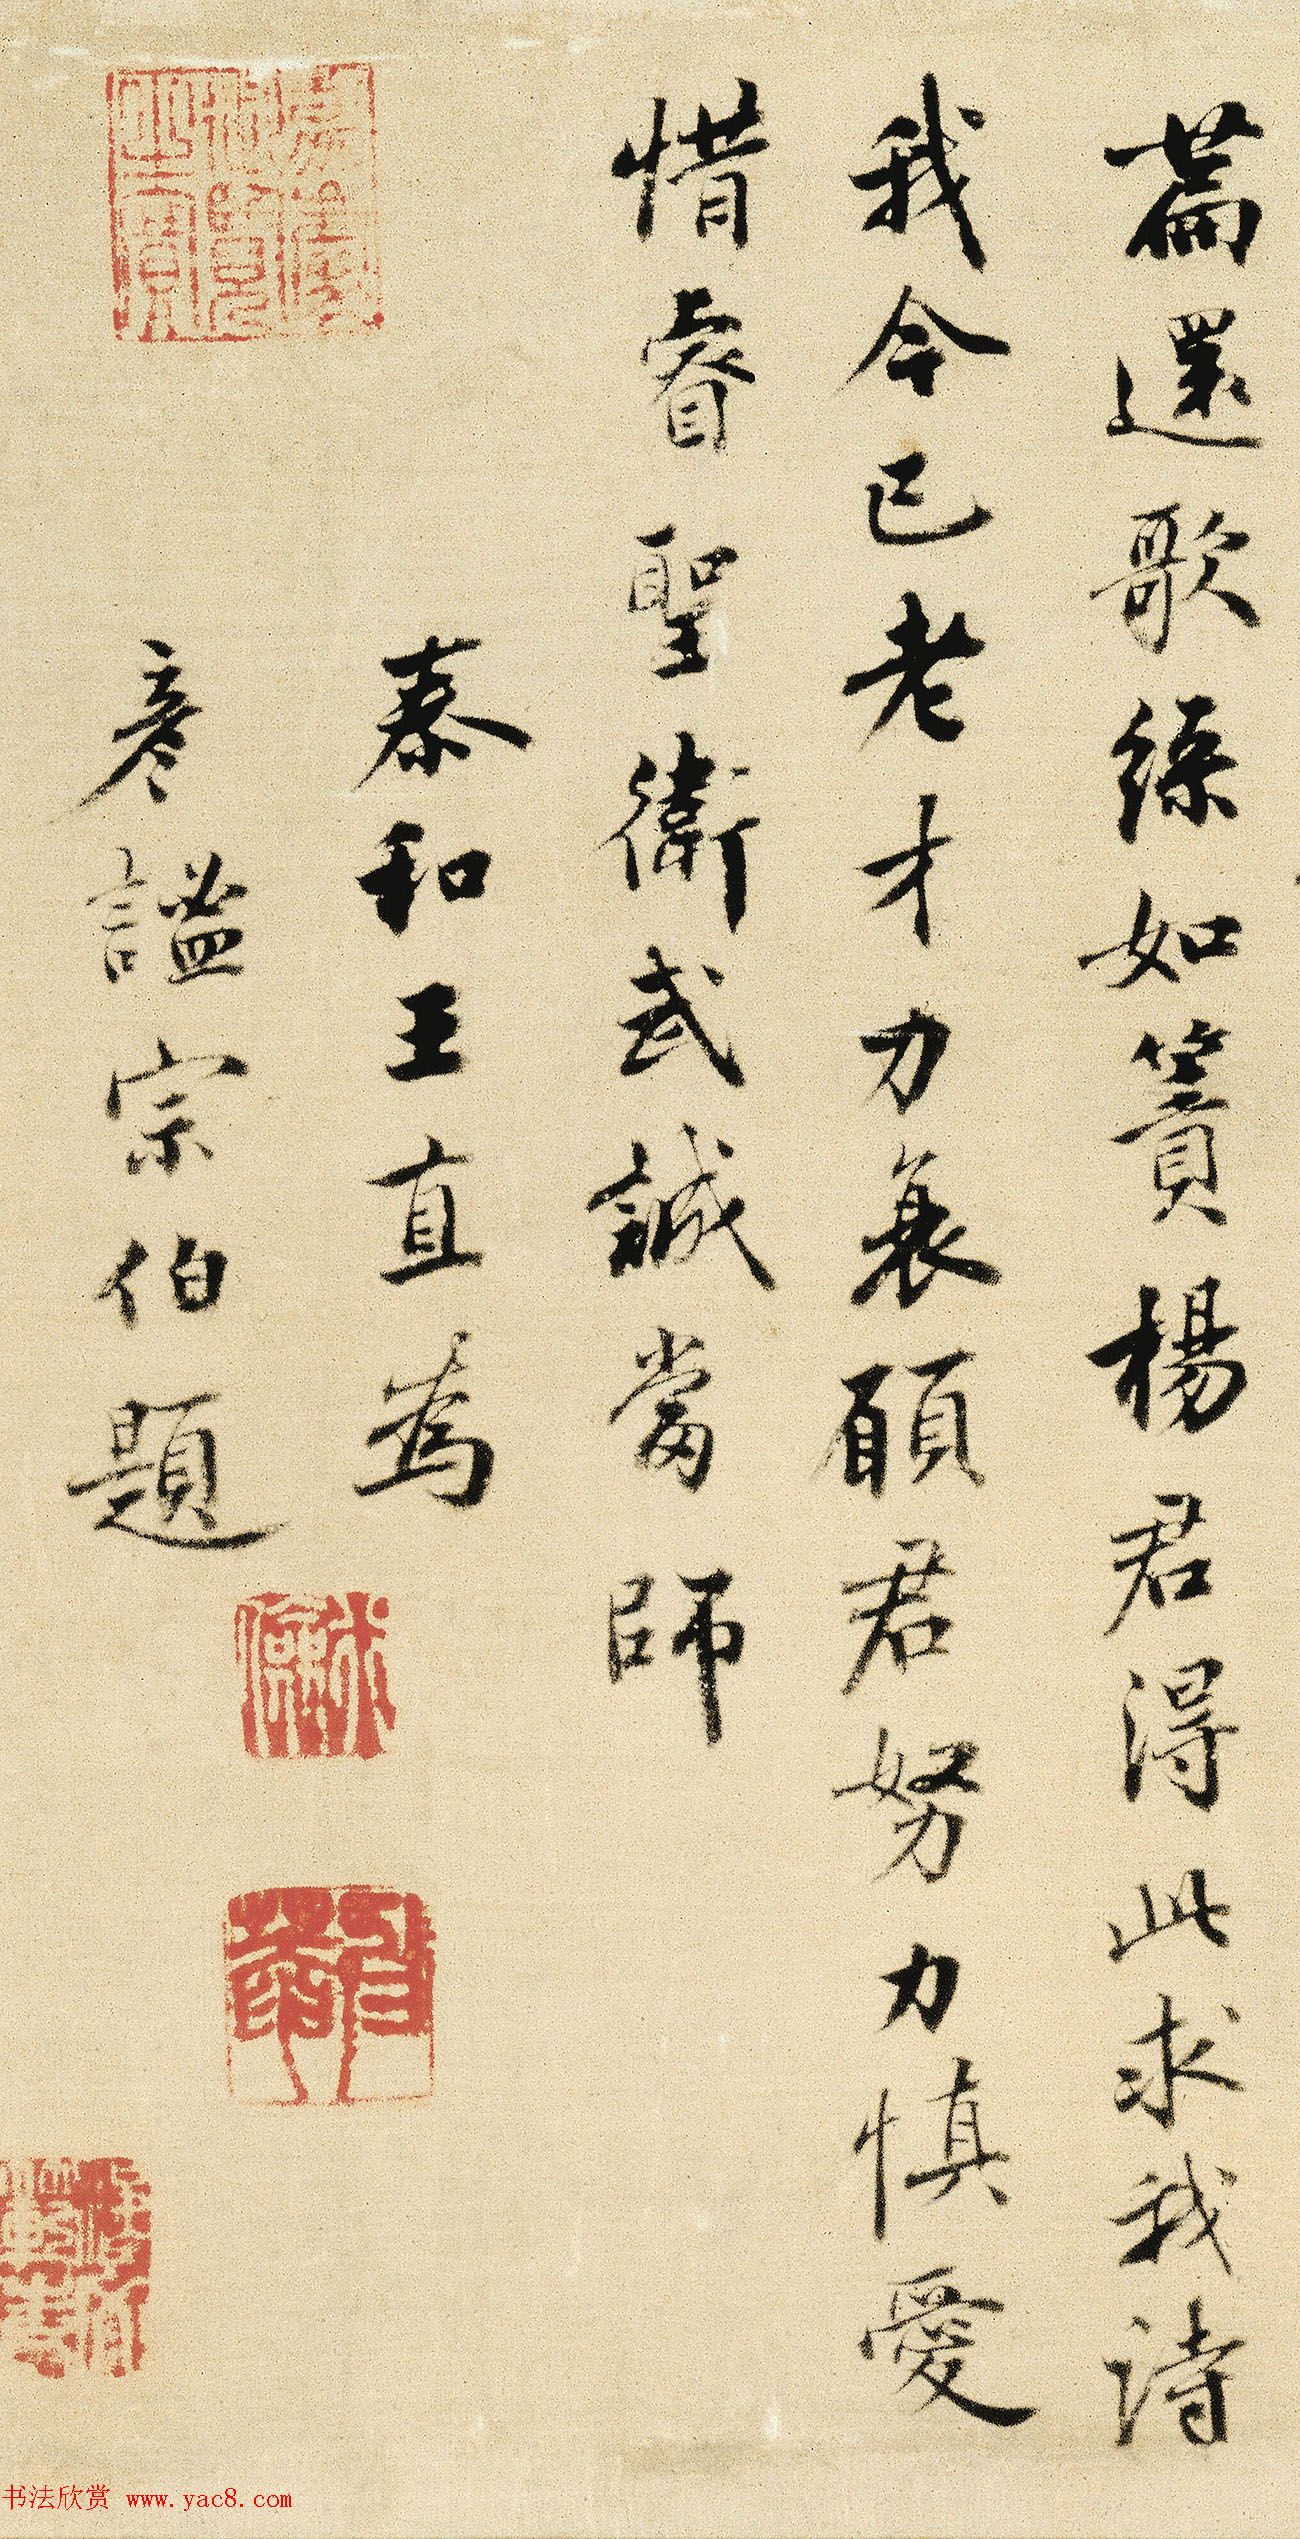 篇還歌綠如簀楊君得此求我詩
我今已老才力衰顧君努力慎愛
惜睿聖衛武誠當師
泰和王直為
彥謐宗伯題
书法欣赏 www.yac8.com